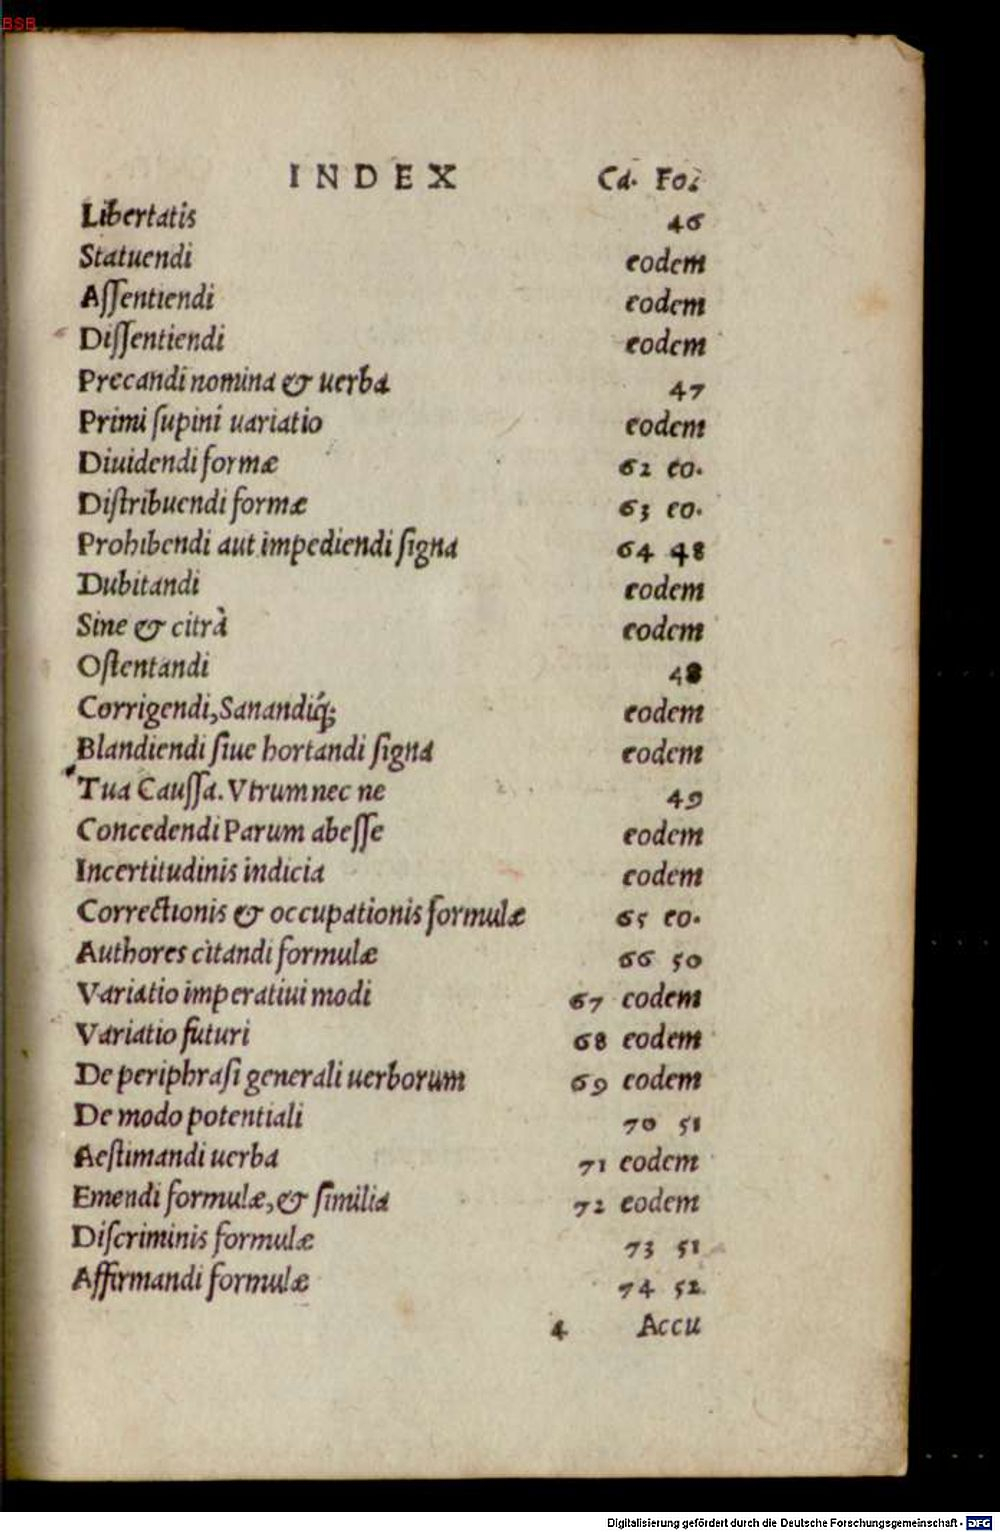 BSB
INDEX Ca. Fo.
Libertatis 46
Statuendi eodem
Aſſentiendi eodem
Diſſentiendi eodem
Precandi nomina & uerba 47
Primi ſupini uariatio eodem
Diuidendi formæ 62 eo.
Diſtribuendi formæ 63 eo.
Prohibendi aut impediendi ſigna 64 48
Dubitandi eodem
Sine & citrà eodem
Oſtentandi 48
Corrigendi, Sanandiq́; eodem
Blandiendi ſiue hortandi ſigna eodem
Tua Cauſſa. Vtrum nec ne 49
Concedendi Parum abeſſe eodem
Incertitudinis indicia eodem
Correctionis & occupationis formulæ 65 eo.
Authores citandi formulæ 66 50
Variatio imperatiui modi 67 eodem
Variatio futuri 68 eodem
De periphraſi generali uerborum 69 eodem
De modo potentiali 70 51
Aeſtimandi uerba 71 eodem
Emendi formulæ, & ſimilia 72 eodem
Diſcriminis formulæ 73 51
Affirmandi formulæ 74 52
4 Accu
Digitalisierung gefördert durch die Deutsche Forschungsgemeinschaft - DFG